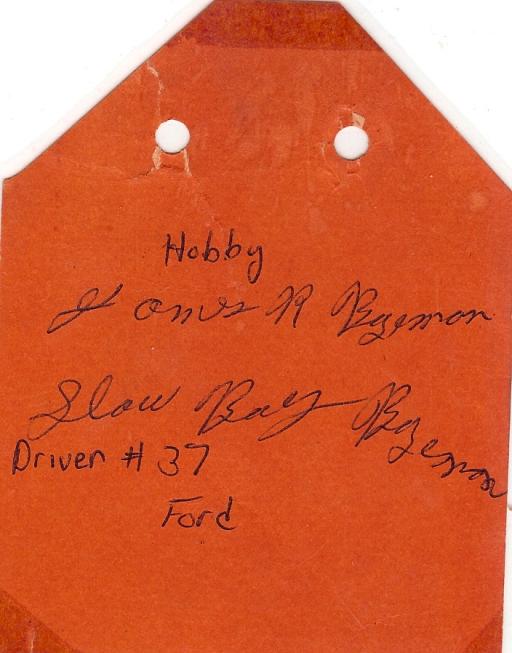 Hobby
James R Bozeman
Slow Boy Bozeman
Driven # 37
Ford